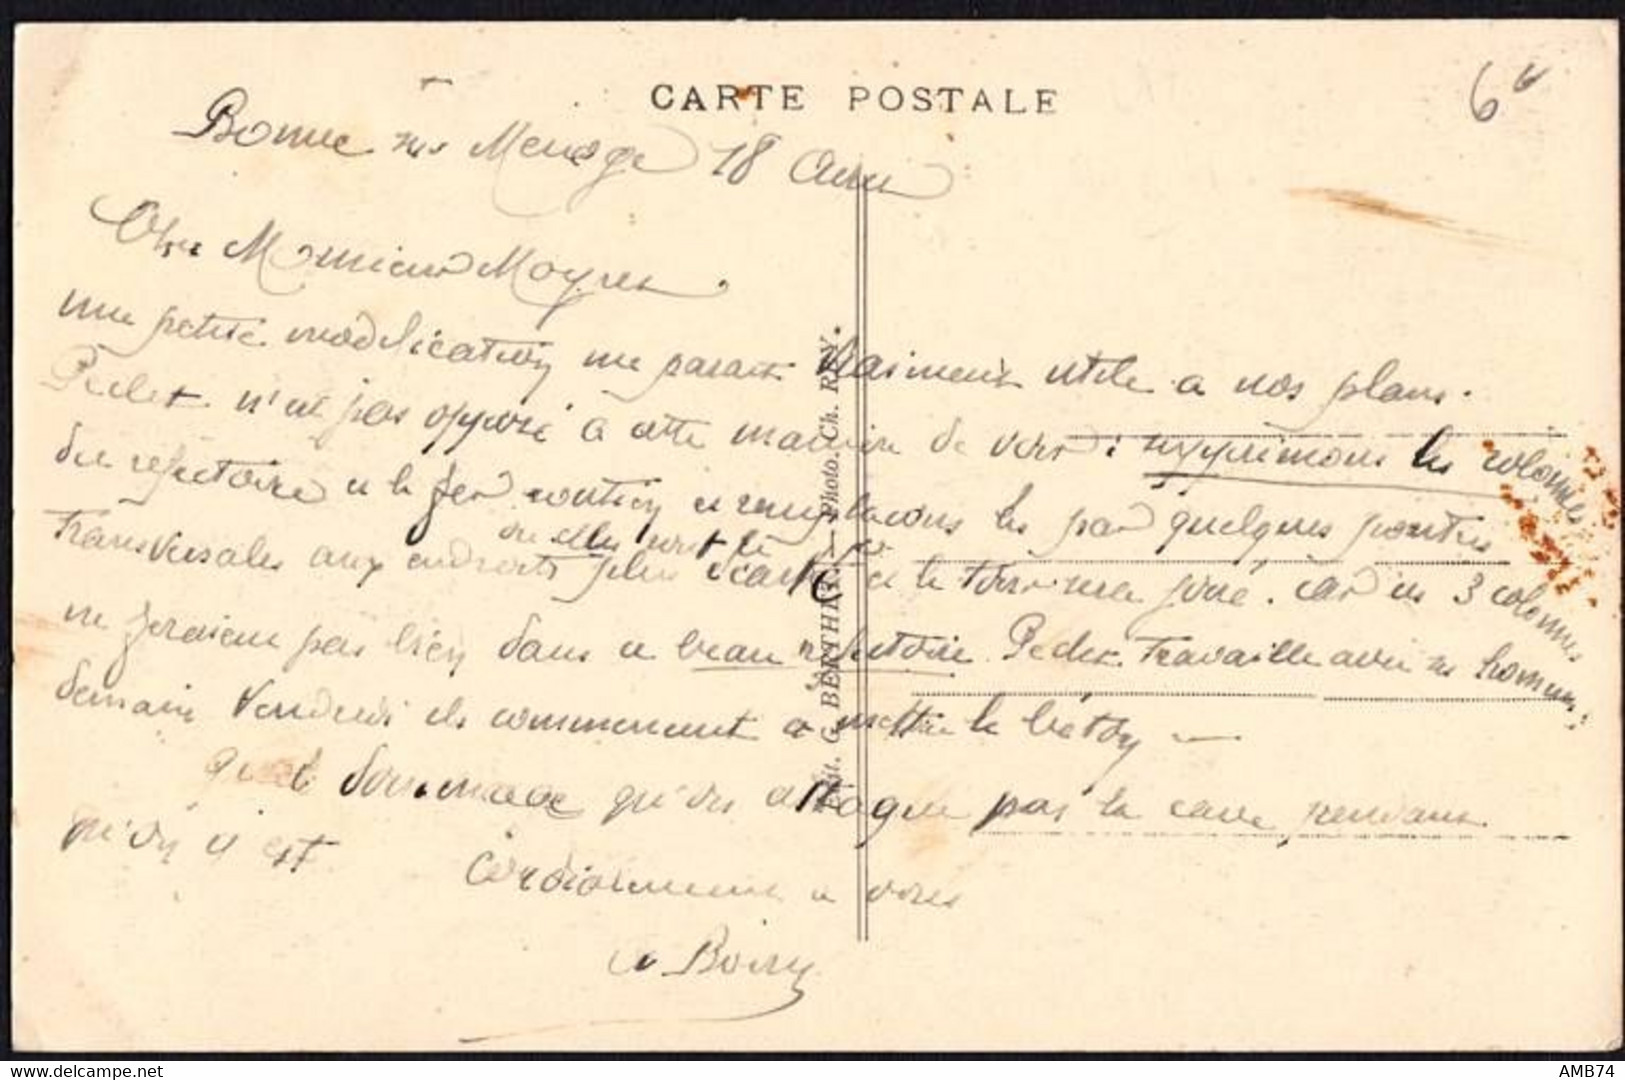 CARTE POSTALE
6
Bonne sur Menoge 18 Avril
Cher Monsieur Moyret
une petite modification me parait vraiment utile a nos plans.
Pedet n'est pas opposé à cette manière de voir : supprimons les colonnes
du refectoire et le fer et remplaçons les par quelques poutres
où elles sont le
transversales aux endroits plus écartés et le tour sera joué. Car ces 3 colonnes
ne feraient pas bien dans ce beau refectoire. Pedet travaille avec ses hommes;
demain Vendredi ils commencent a mettre le béton —
Quel dommage qu'on attaque pas la cave pendant
qu'on y est
Cordialement a vous
Boiry
Edit. G. BERTHET. — Photo. Ch. REY.
AMB74
www.delcampe.net